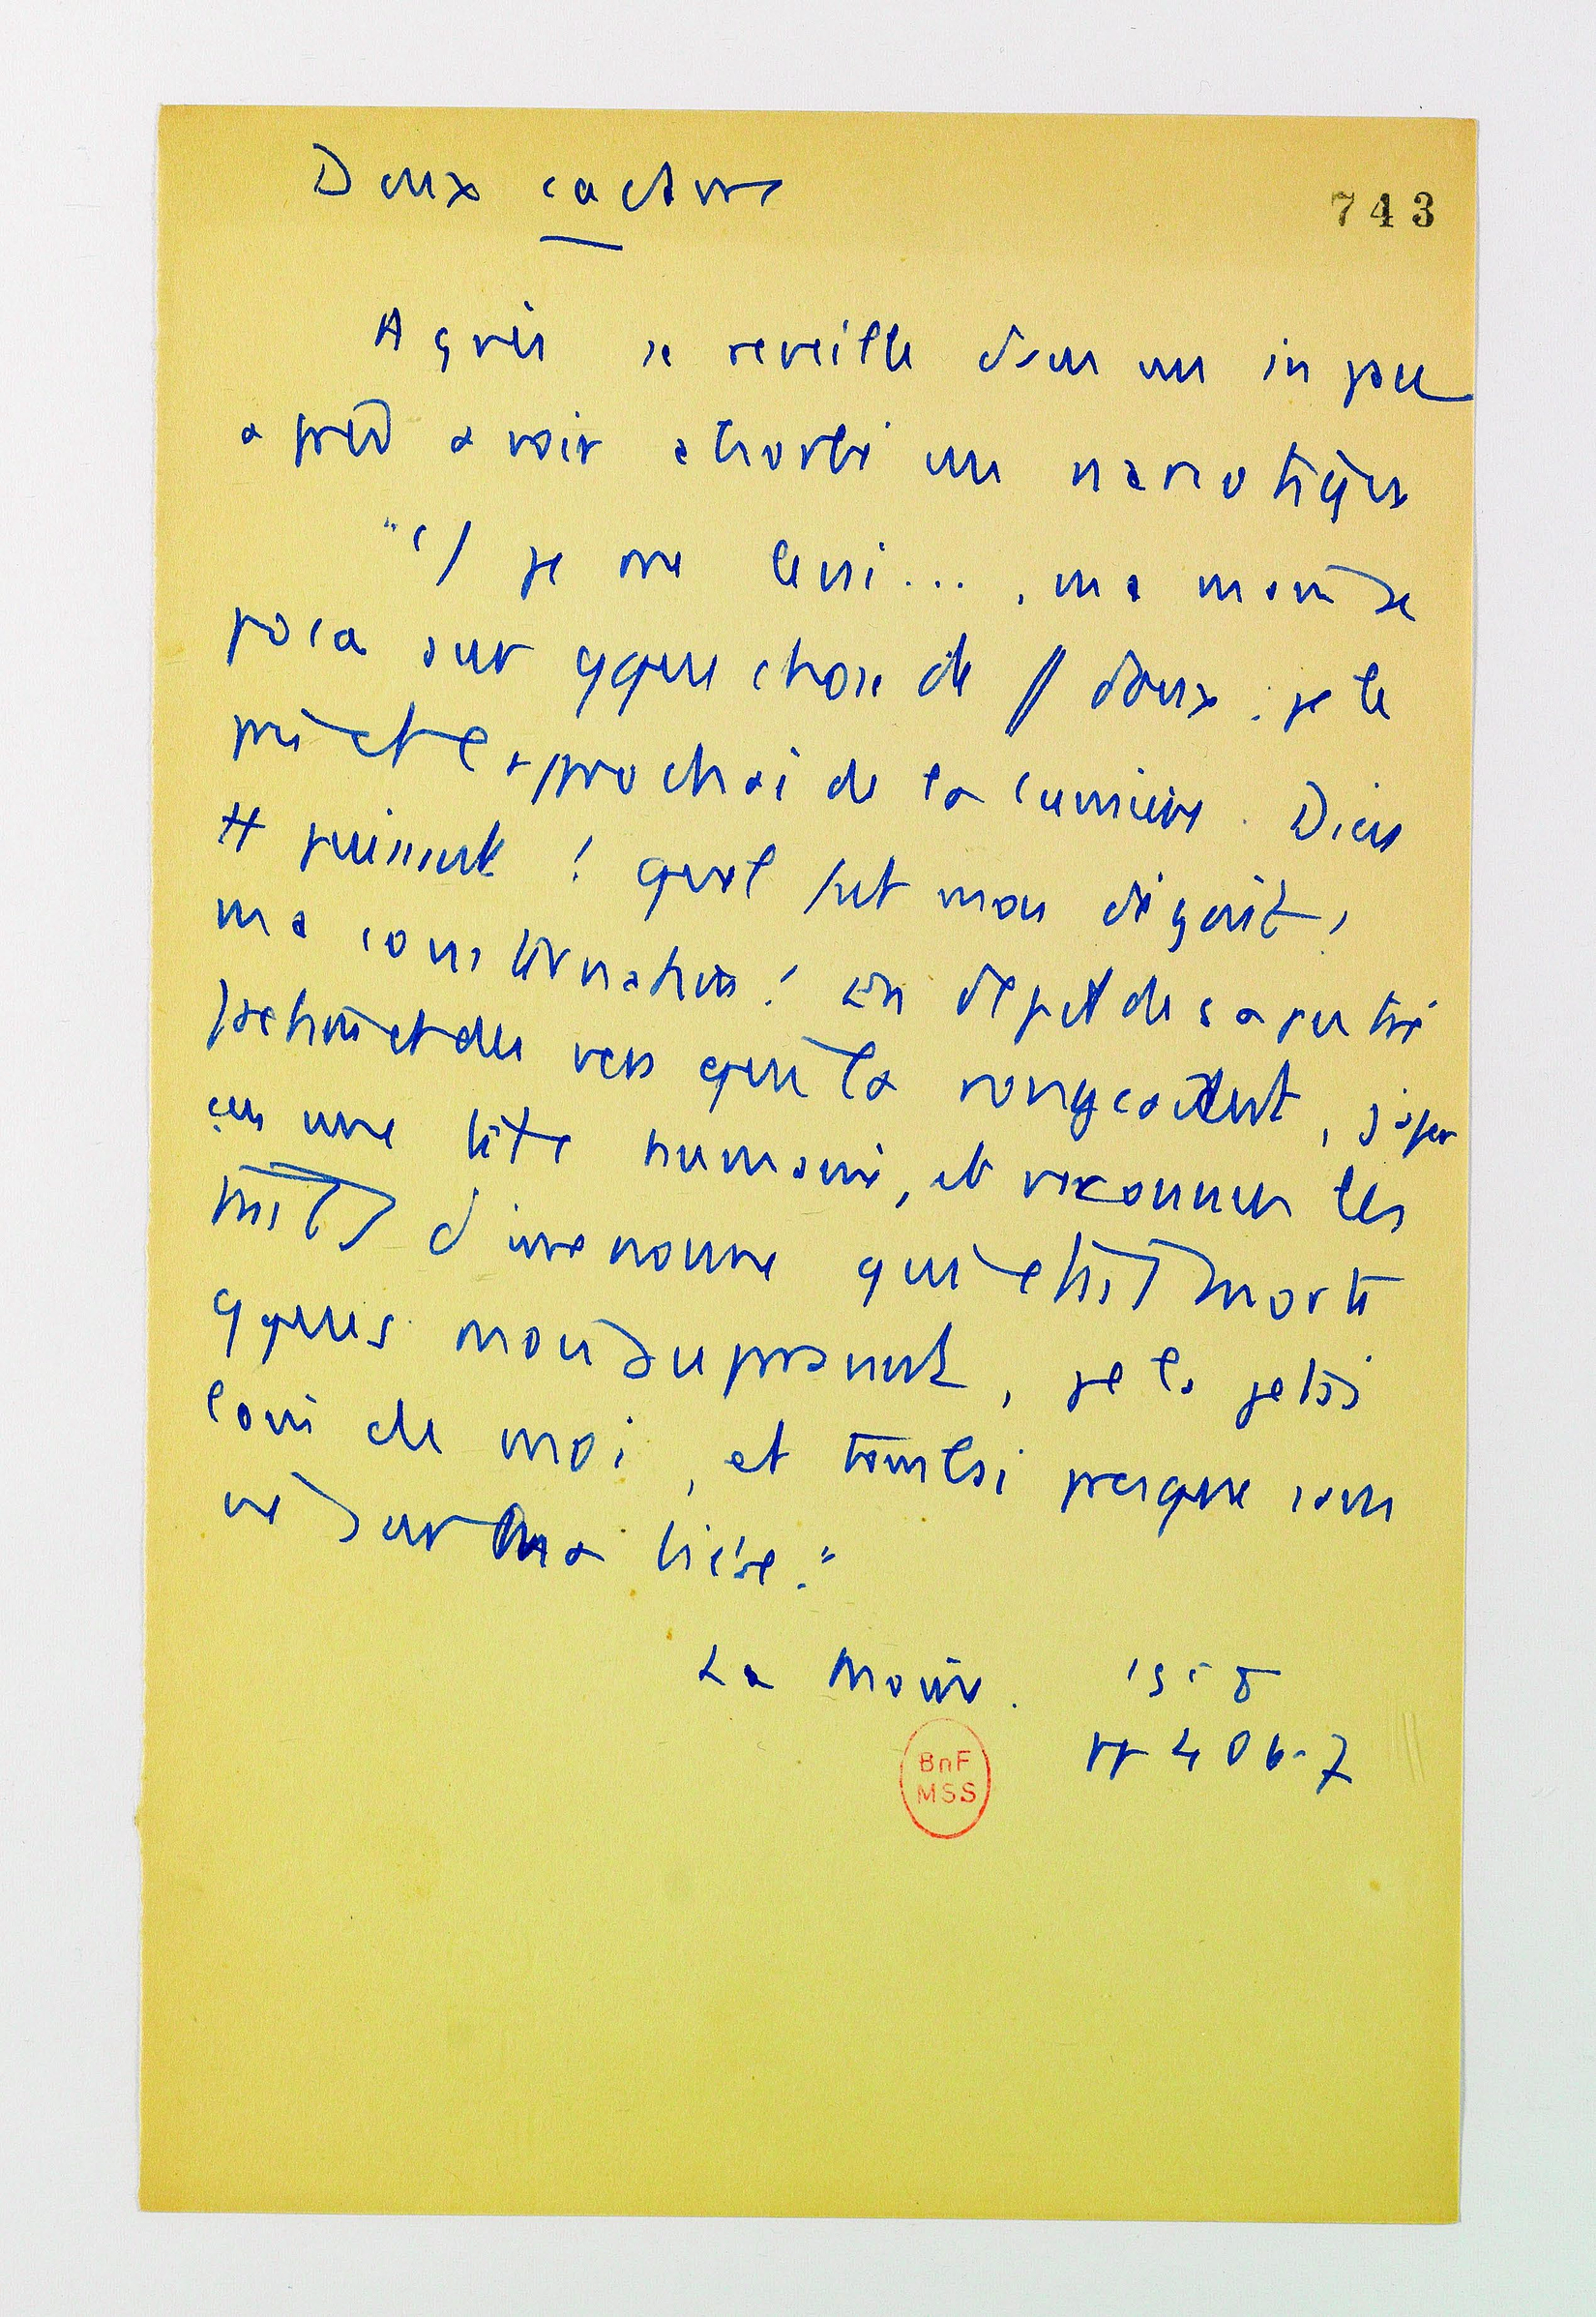 Deux cactus
743
Agnès se réveille dans un in pace
après avoir absorbé un narcotique
"(/ je me levai..., ma main se
posa sur qque chose de doux : je le
pris et l'approchai de la lumière. Dieu
tt puissant ! quel fut mon dégoût,
ma consternation ! en dépit de sa putré
faction et des vers qui la rongeaient, j'aper
çus une tête humaine, et reconnus les
traits d'une nonne qui était morte
qques mois auparavant, je la jetai
loin de moi, et tombai presque sans
vie sur ma bière."
Le Moine.
pp 406-7
BnF
MSS